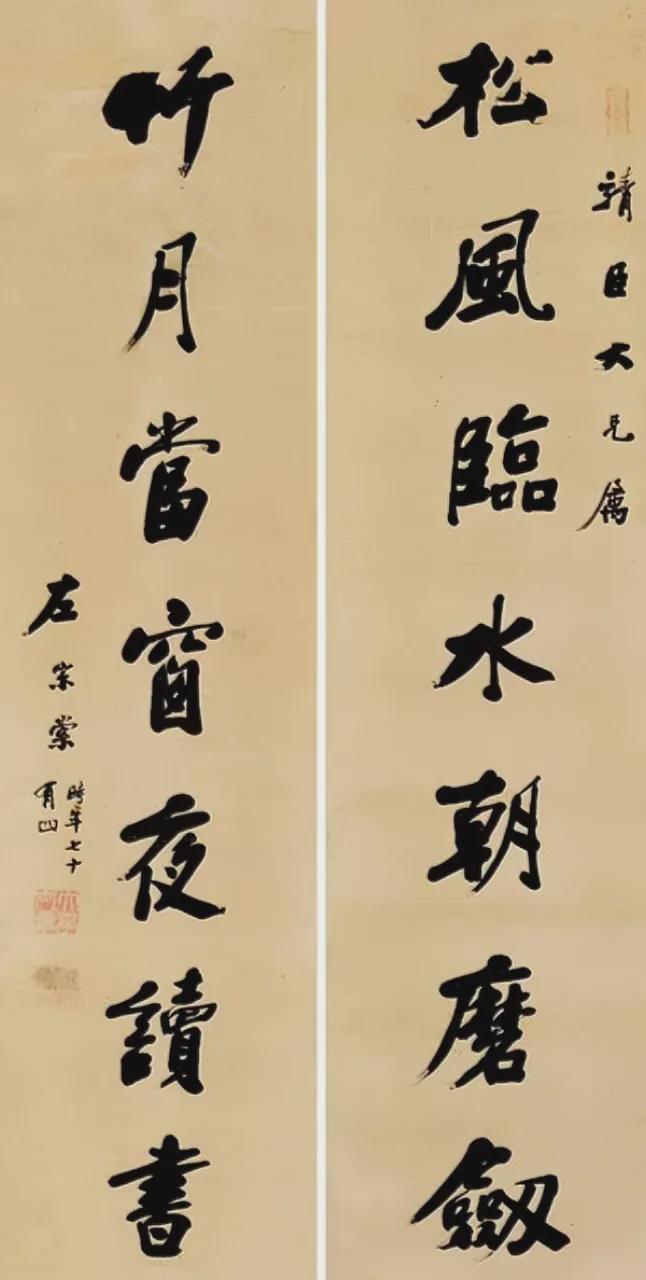 靖臣大兄属
松風臨水朝磨劒
竹月當窗夜讀書
左宗棠
時年七十
有四